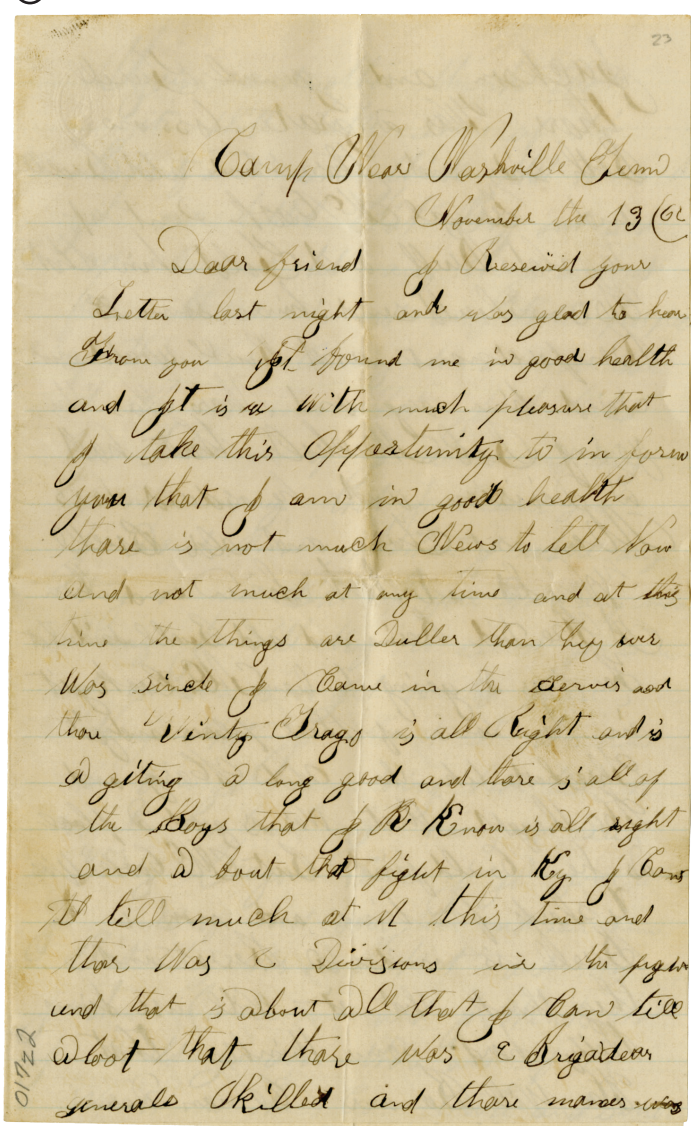 23
Camp Near Nashville Tenn
November the 13 /62
Dear friend I Reseivid your
Letter last night and was glad to hear
From you it found me in good health
and It is with much pleasure that
I take this Oppertunity to in form
you that I am in good health
thare is not much News to tell Now
and not much at any time and at this
time the things are Duller than they ever
Was sinde I Came in the servis and
thare Vinty Trago is all Right and is
a giting a long good and thare is all of
the Boys that I Know is all right
and a bout that fight in Ky I Can
tell much at it this time and
thar Was 2 Divisions in the
and that is about all that I Can till
aboot that thare was 2 Brigadear
generals Skilled and thare names was
01722